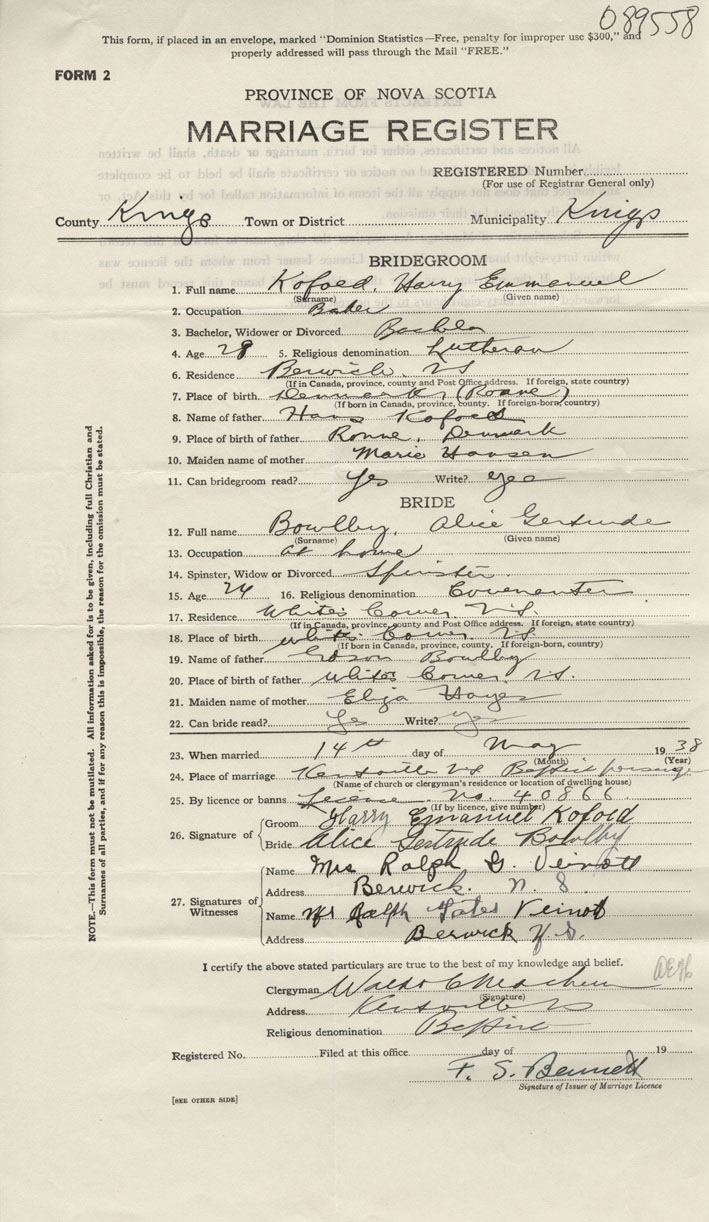 089558
This form, if placed in an envelope, marked "Dominion Statistics—Free, penalty for improper use $300," and
properly addressed will pass through the Mail "FREE."
FORM 2
PROVINCE OF NOVA SCOTIA
MARRIAGE REGISTER
REGISTERED Number
(For use of Registrar General only)
County Kings Town or District Municipality Kings
BRIDEGROOM
1. Full name Kofoed, Harry Emmanuel
(Surname) (Given name)
2. Occupation Baker
3. Bachelor, Widower or Divorced Bachelor
4. Age 29 5. Religious denomination Lutheran
6. Residence Berwick NS
(If in Canada, province, county and Post Office address. If foreign, state country)
7. Place of birth Denmark (Ronne)
(If born in Canada, province, county. If foreign-born, country)
8. Name of father Hans Kofoed
9. Place of birth of father Ronne, Denmark
10. Maiden name of mother Marie Hansen
11. Can bridegroom read? Yes Write? Yes
BRIDE
12. Full name Bowlby, Alice Gertrude
(Surname) (Given name)
13. Occupation at home
14. Spinster, Widow or Divorced Spinster
15. Age 24 16. Religious denomination Covenanter
17. Residence Whites Corner N.S.
(If in Canada, province, county and Post Office address. If foreign, state country)
18. Place of birth Whites Corner NS
(If born in Canada, province, county. If foreign-born, country)
19. Name of father Edson Bowlby
20. Place of birth of father Whites Corner N.S.
21. Maiden name of mother Eliza Hayes
22. Can bride read? Yes Write? Yes
23. When married 14th day of May 1938
(Month) (Year)
24. Place of marriage Kentville NS Baptist parsonage
(Name of church or clergyman's residence or location of dwelling house)
25. By licence or banns Licence No. 40866
(If by licence, give number)
26. Signature of
Groom Harry Emanuel Kofoed
Bride Alice Gertrude Bowlby
27. Signatures of Witnesses
Name Mrs Ralph G. Veinott
Address Berwick. N. S.
Name Mr Ralph Gates Veinot
Address Berwick N.S.
I certify the above stated particulars are true to the best of my knowledge and belief.
Clergyman Waldo C Machum
(Signature)
Address Kentville NS
Religious denomination Baptist
Registered No. Filed at this office day of 19
F. S. Bennett
Signature of Issuer of Marriage Licence
[SEE OTHER SIDE]
NOTE.—This form must not be mutilated. All information asked for is to be given, including full Christian and
Surnames of all parties, and if for any reason this is impossible, the reason for the omission must be stated.